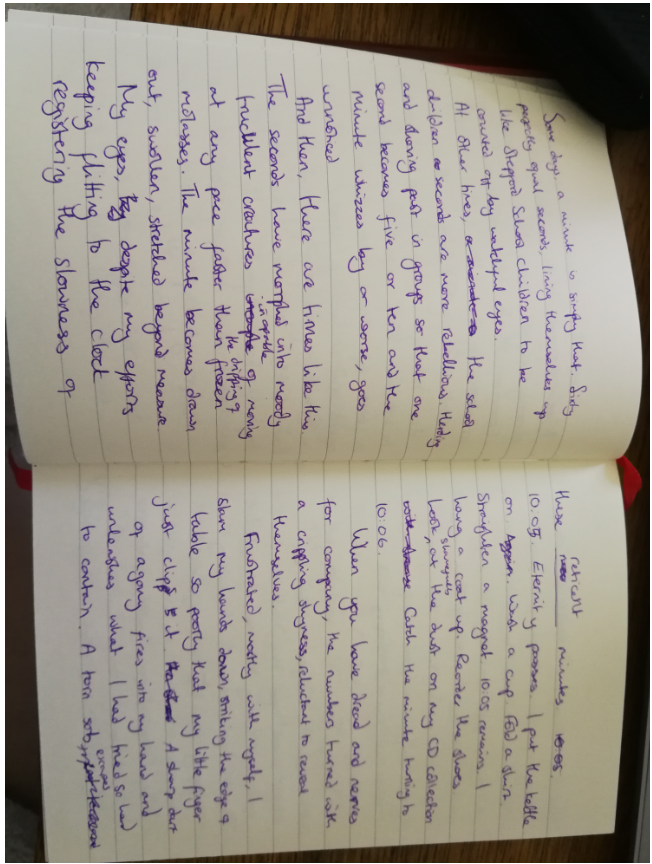 Some days a minute is simply that. Sixty
perfectly equal seconds, lining themselves up
like Stepford School children to be
counted off by watchful eyes.
At other times, the school
children seconds are more rebellious. Herding
and shoving past in groups so that one
second becomes five or ten and the
minute whizzes by or worse, goes
unnoticed
And then, there are times like this.
The seconds have morphed into moody
truculent creatures incapable of moving
at any pace faster than the dripping of frozen
molasses. The minute becomes drawn
out, swollen, stretched beyond measure
My eyes, despite my efforts
keeping flitting to the clock
registering the slowness of
these reticent minutes
10:05. Eternity passes. I put the kettle
on. Wash a cup. Fold a shirt.
Straighten a magnet. 10:05 remains. I
hang a coat up. Reorder the shoes
Look at the dust on my CD collection
Catch the minute turning to
10:06.
When you have dread and nerves
for company, the numbers turned with
a crippling shyness, reluctant to reveal
themselves.
Frustrated, mostly with myself, I
slam my hands down, striking the edge of
table so poorly that my little finger
just clips it. A sharp dart
of agony fires into my hand and
unleashes what I had tried so hard
to contain. A torn sob, escapes